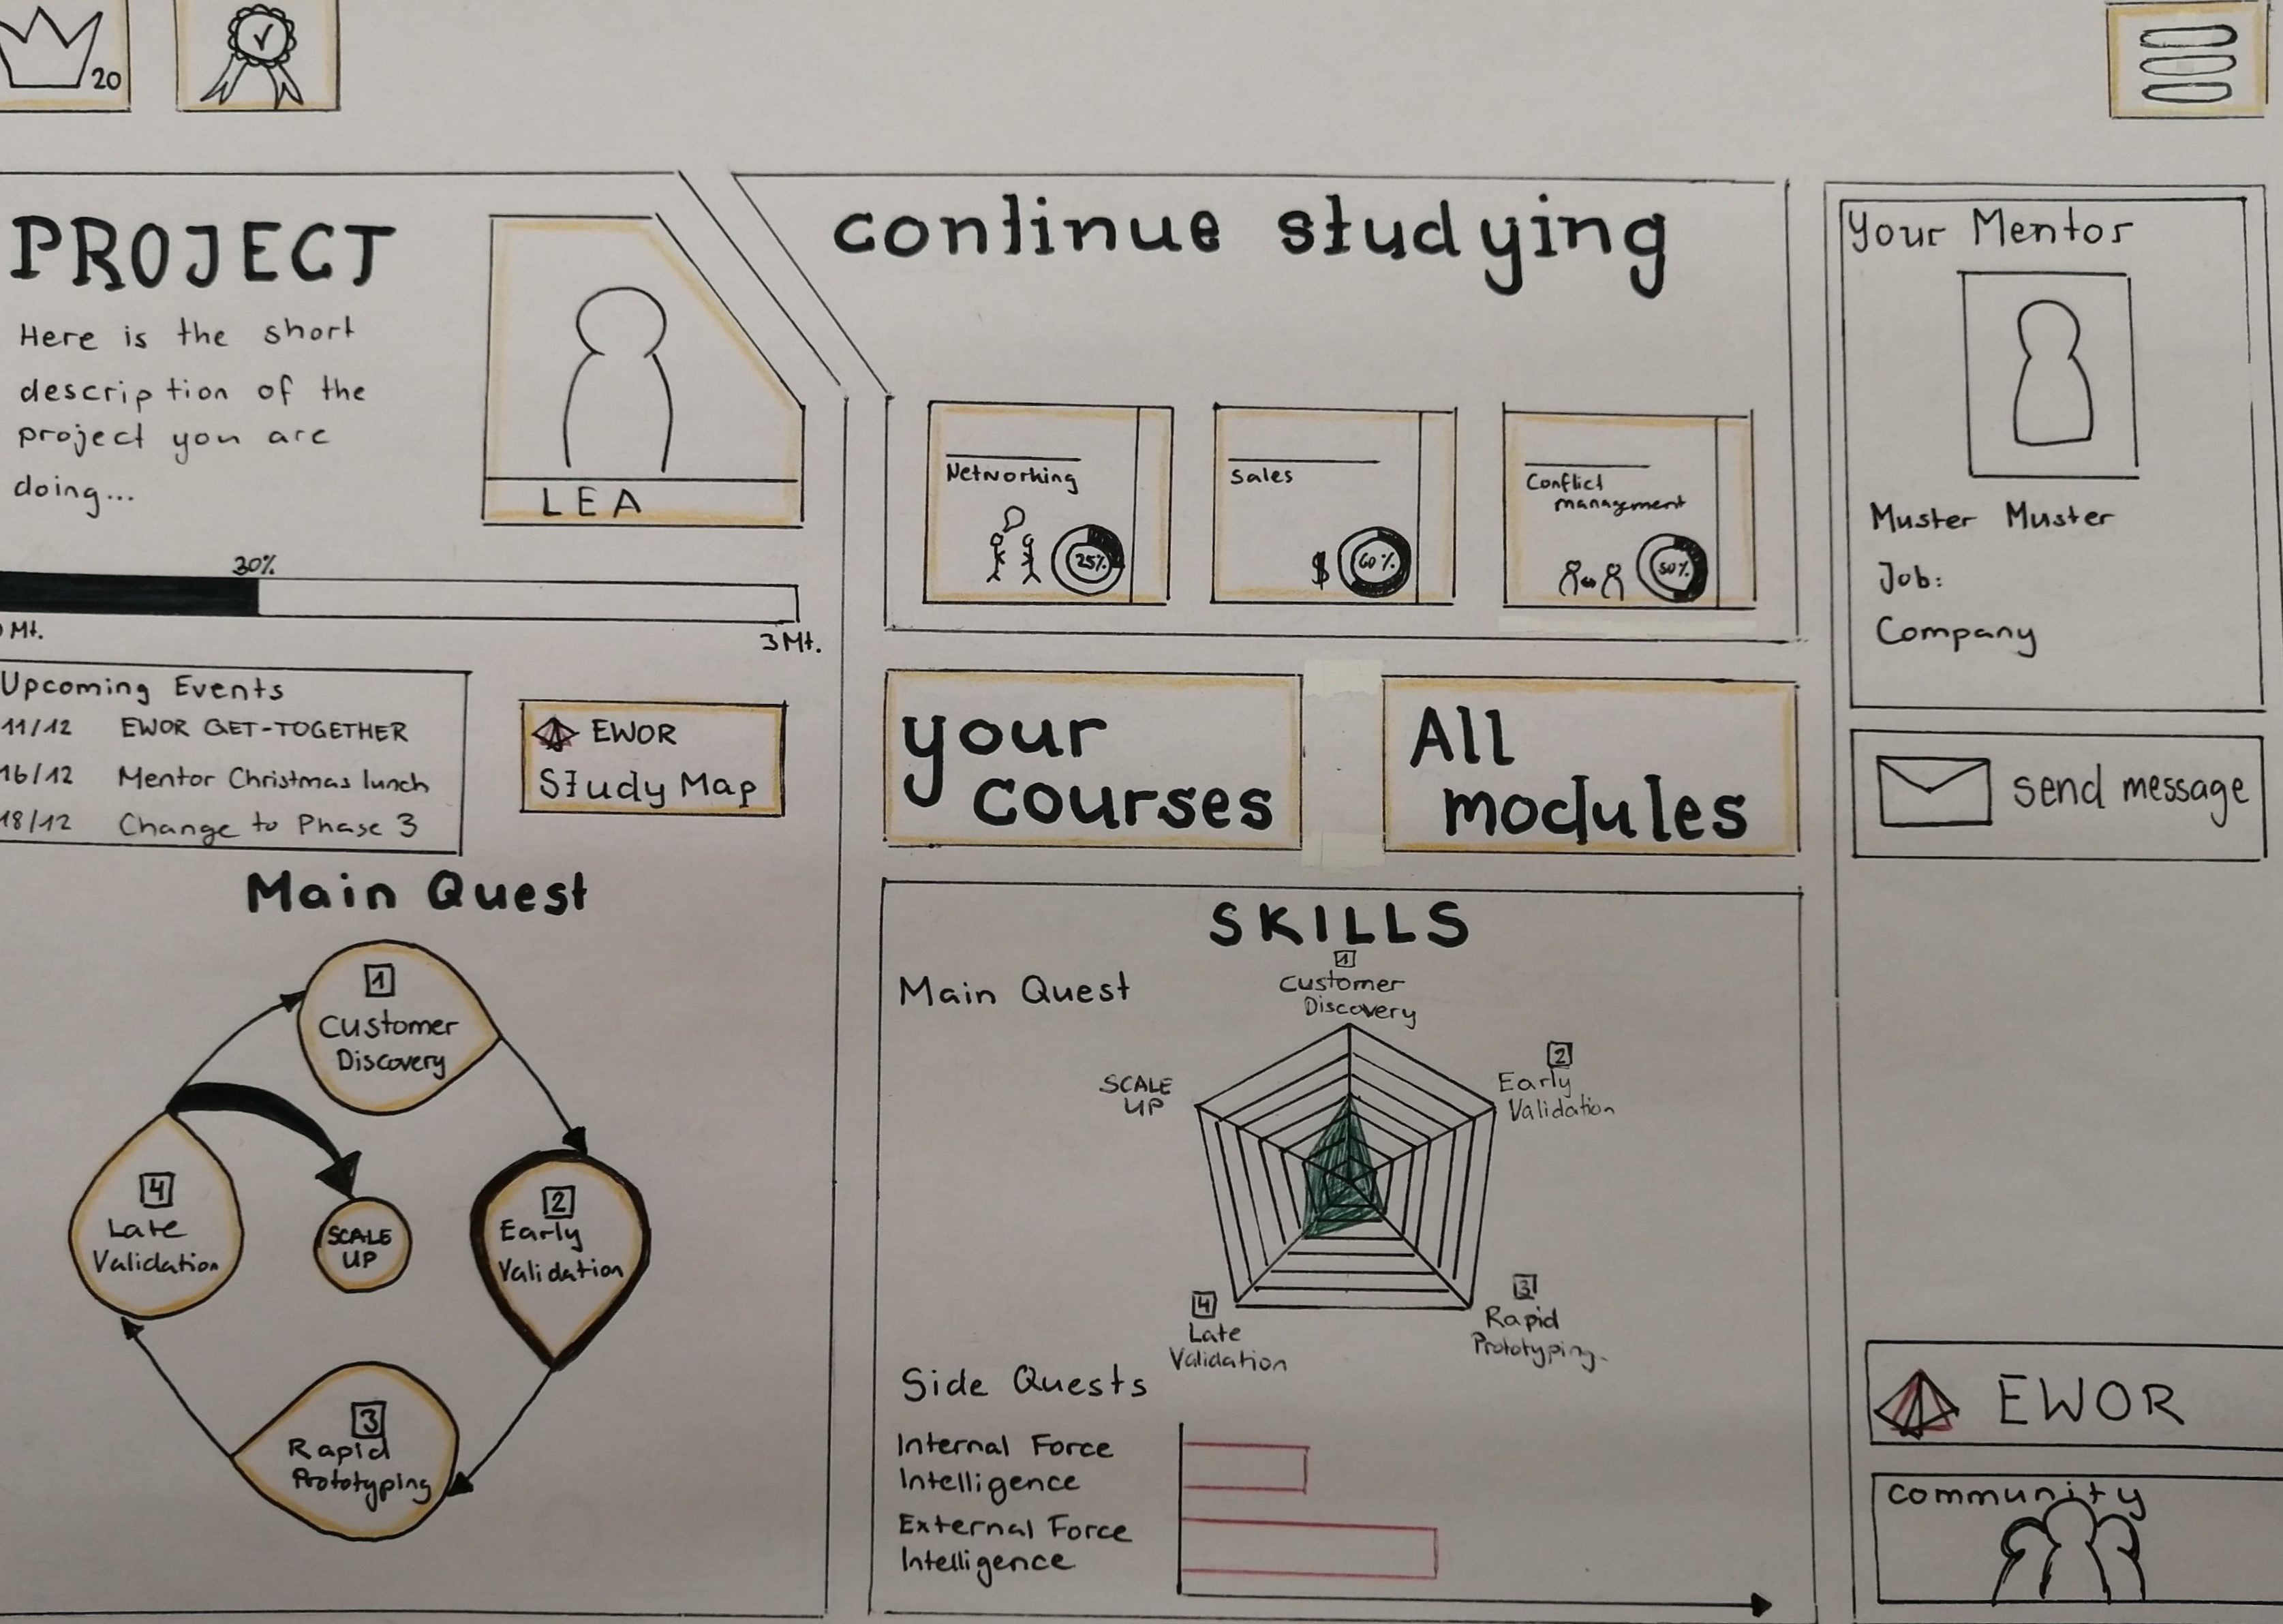 20
PROJECT
Here is the short
description of the
project you are
doing...
LEA
30%
Mt.
3 Mt.
Upcoming Events
11/12 EWOR GET-TOGETHER
16/12 Mentor Christmas lunch
18/12 Change to Phase 3
EWOR
Study Map
Main Quest
1
Customer
Discovery
2
Early
Validation
3
Rapid
Prototyping
4
Late
Validation
SCALE
UP
continue studying
Networking
25%
Sales
60%
Conflict
management
50%
your
courses
All
modules
SKILLS
Main Quest
1
Customer
Discovery
2
Early
Validation
3
Rapid
Prototyping.
4
Late
Validation
SCALE
UP
Side Quests
Internal Force
Intelligence
External Force
Intelligence
your Mentor
Muster Muster
Job:
Company
send message
EWOR
community